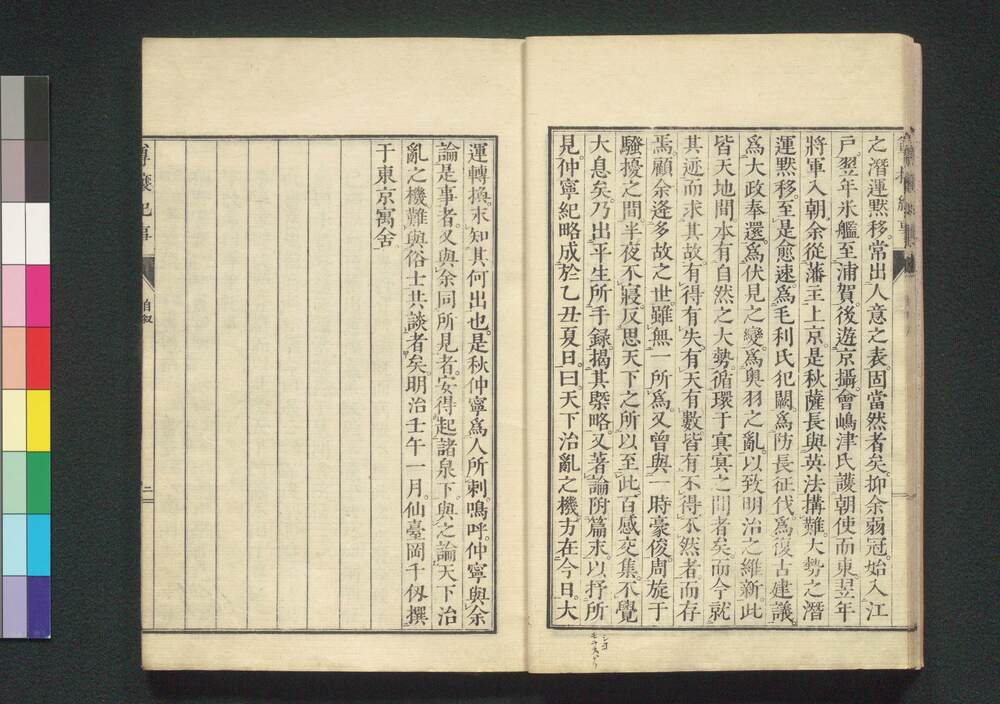 之潛運默移。常出人意之表。固當然者矣。抑余弱冠。始入江
戸。翌年氷艦至浦賀。後遊京攝。會嶋津氏護朝使而東。翌年
將軍入朝。余從藩主上京。是秋薩長與英法搆難。大勢之潛
運默移。至是愈速。爲毛利氏犯闕。爲防長征伐。爲復古建議。
爲大政奉還。爲伏見之變。爲奥羽之亂。以致明治之維新。此
皆天地間本有自然之大勢。循環于㝠㝠之間者矣。而今就
其迹而求其故。有得有失。有天有數。皆有不得不然者而存
焉。顧余逢多故之世。雖無一所爲。又曾與一時豪俊。周旋于
騷擾之間。半夜不寢。反思天下之所以至此。百感交集。不覺
大息矣。乃出平生所手録。揭其槩略。又著論附篇末。以抒所
見。仲寧紀略成於乙丑夏日。曰。天下治亂之機。方在今日。大
運轉換。未知其何出也。是秋仲寧爲人所刺。嗚呼。仲寧與余
論是事者。又與余同所見者。安得起諸泉下。與之論天下治
亂之機。難與俗士共談者矣。明治壬午一月。仙臺岡千仭撰
于東京寓舍
尊攘紀事
自叙
二